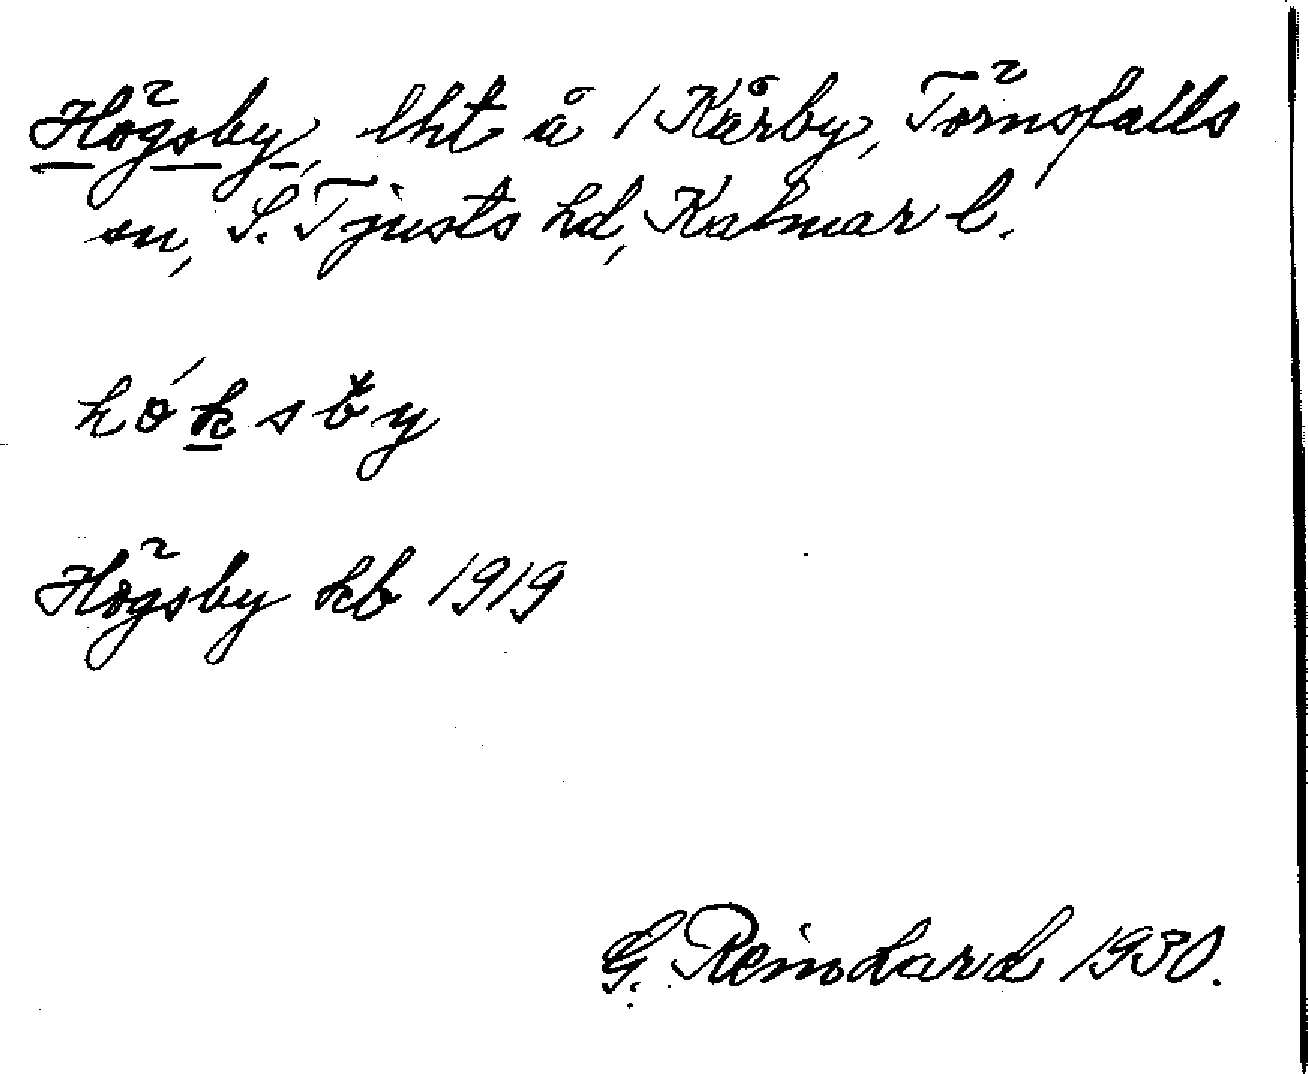 Högsby, lht å 1 Kårby, Törnsfalls
sn, S. Tjusts hd, Kalmar l.
hö́ksb̌y
Högsby kb 1919
G. Reinhard 1930.